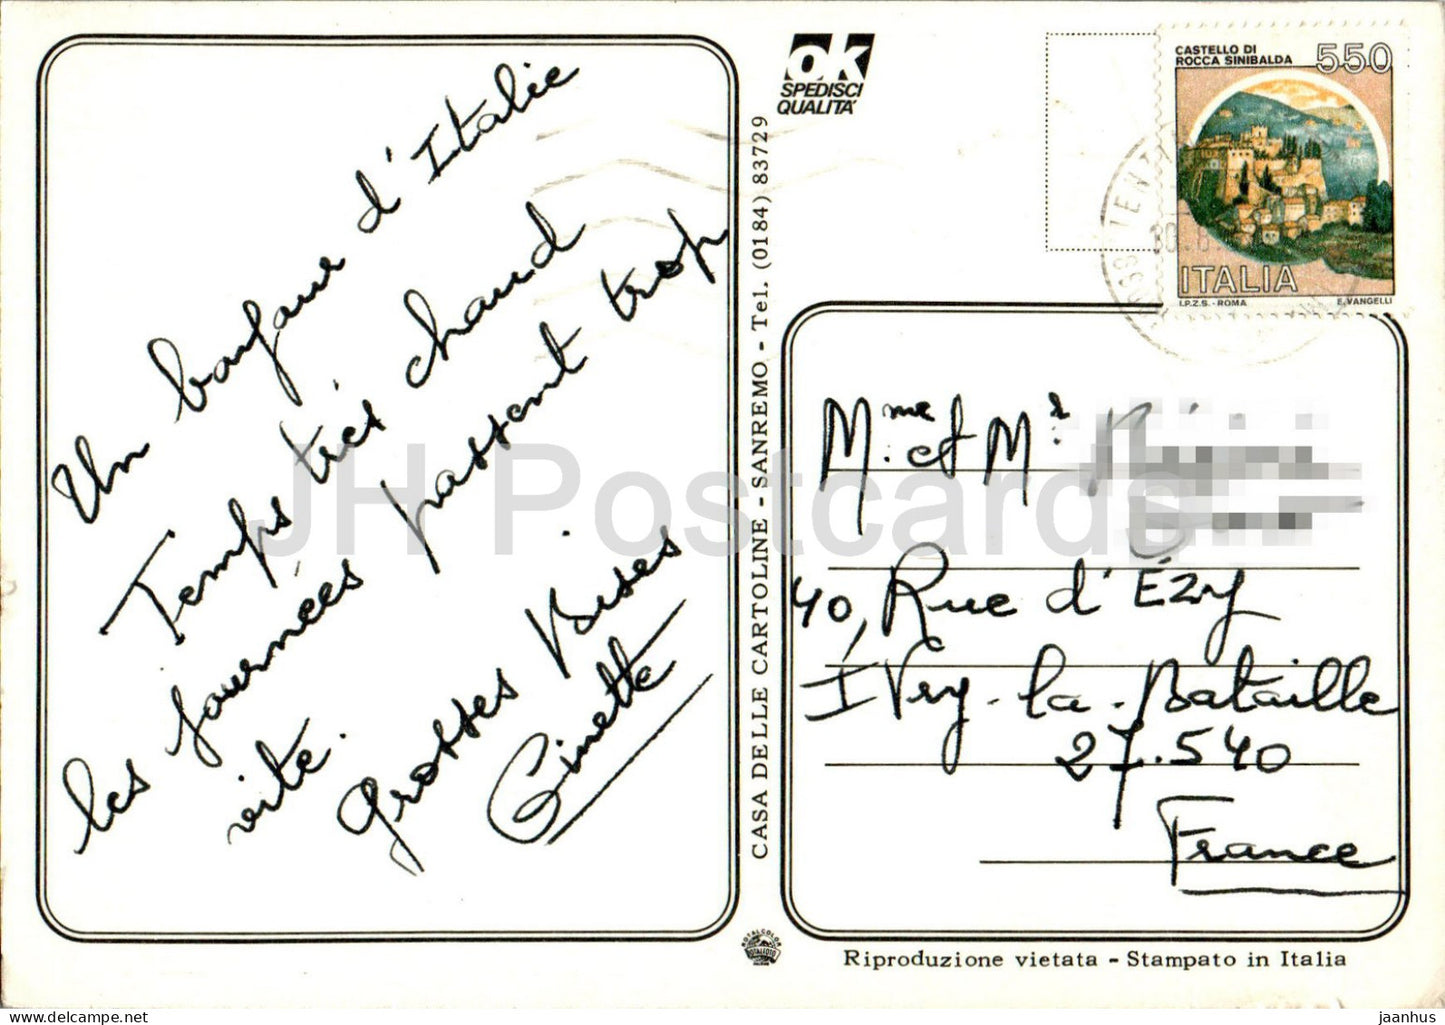 Un bonjour d'Italie
Temps très chaud
les journées passent trop
vite.
Grosses Bises
Ginette
OK
SPEDISCI
QUALITA'
CASA DELLE CARTOLINE - SANREMO - Tel. (0184) 83729
CASTELLO DI
ROCCA SINIBALDA
550
ITALIA
I.P.Z.S. - ROMA E. VANGELLI
Mme. et Mr
40, Rue d'Ézy
Ivry-la-Bataille
27.540
France
ROTALCOLOR
ROTALFOTO
Riproduzione vietata - Stampato in Italia
JH Postcards
jaanhus